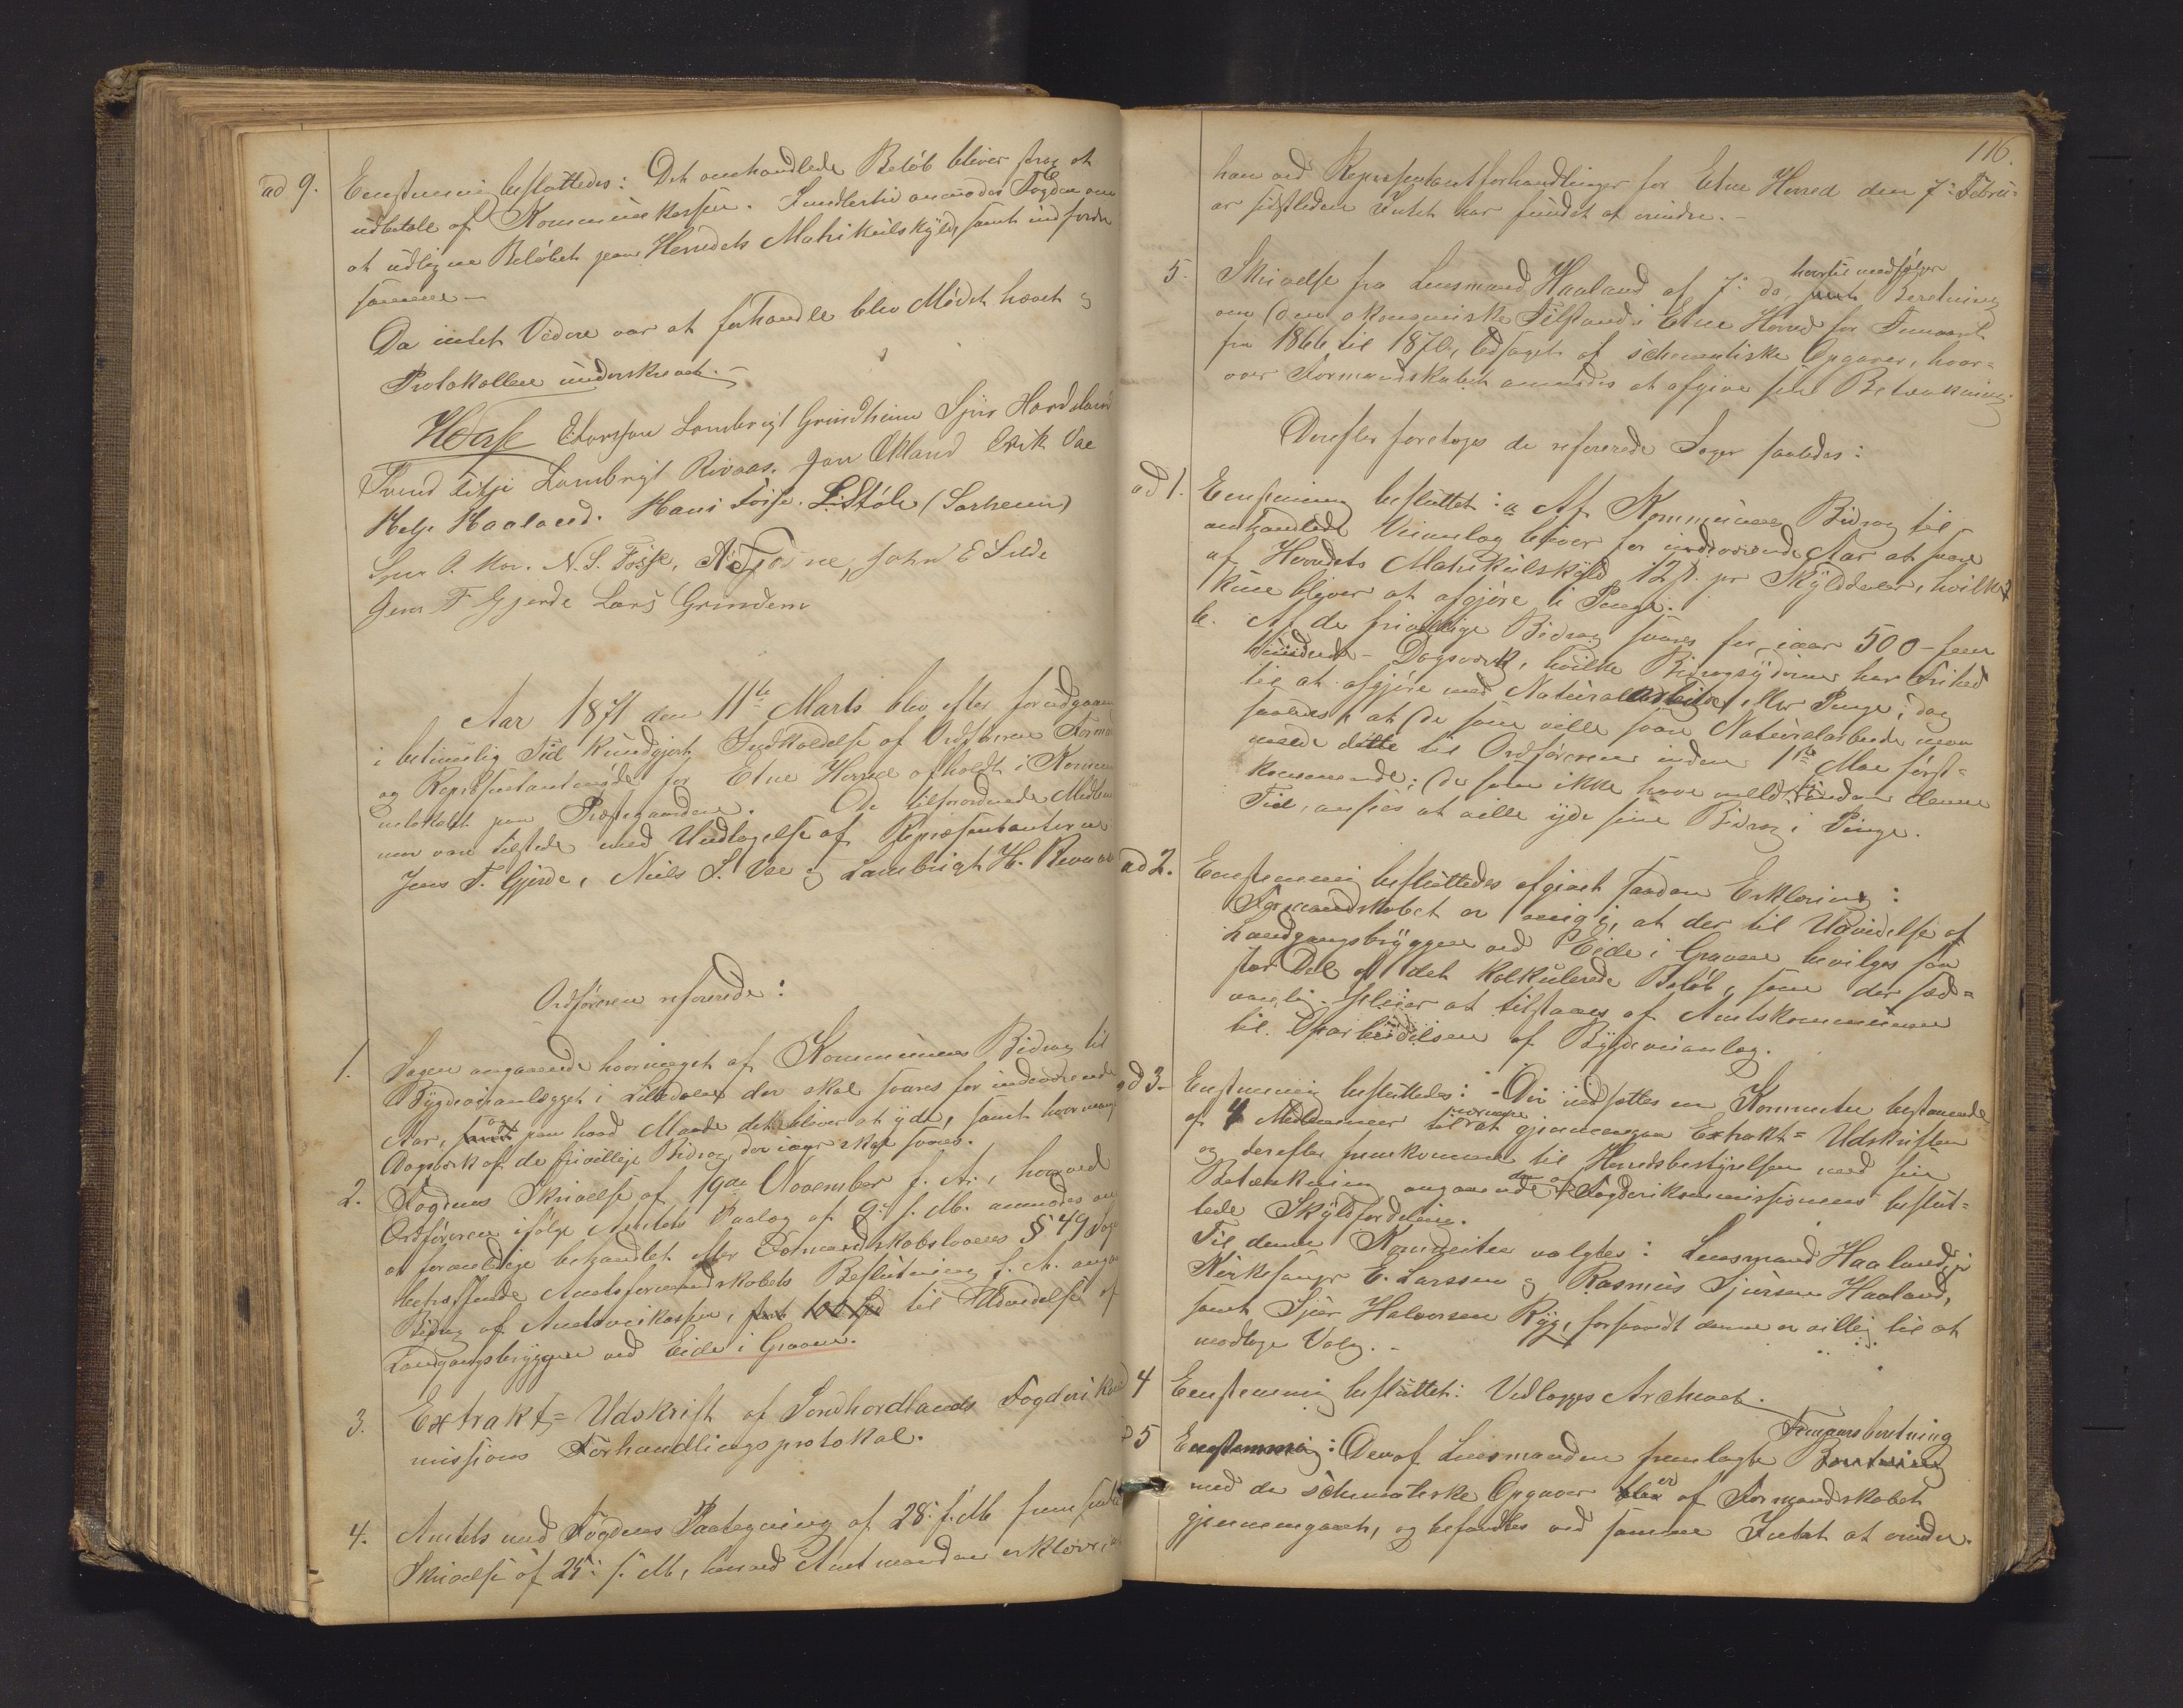 ad 9. Eenstemmig besluttedes: Det omhandlede Beløb bliver strax at
udbetale af Kommunekassen. Imidlertid anmodes Fogden om
at udligne Beløbet paa Herredets Matrikulskyld, samt indfordre
samme -
Da intet Videre var at forhandle blev Mødet hævet og
Protokollen underskrevet. -
E Larssen Lambrigt Grindheim Sjur Hardeland
Svend Lambrigt Rivaas. Jan Ekland Erik Vae
Helje Haaland. Hans Fosse. L. Støle (Sørheim)
N. S. Fosse, A. Fjøsne, John E Silde
Jens T Gjerde Lars Grindem
Aar 1871 den 11te Marts blev efter forudgaaen
i betimelig Tid kundgjort Indkaldelse af Ordføreren Formand
og Repræsentantmøde for Etne Herred afholdt i Kommu
nelokalet paa Præstegaarden. De tilforordnede Medlem
mer vare tilstede med Undtagelse af Repræsentanterne
Jens T. Gjerde, Niels S. Vae og Lambrigt H. Revaas
Ordføreren refererede:
1. Sagen angaaende hvormeget af Kommunens Bidrag til
Bygdeveianlægget i Littledalen der skal svares for indeværende
Aar, og paa hvad Maade det bliver at yde, samt hvor mange
Dagsverk af de frivillige Bidrag, der iaar skal svares.
2. Fogdens Skrivelse af 19de November f. A., hvorved
Ordføreren ifølge Amtets Paalæg af 9: s. M. anmodes om
at foranledige behandlet efter Formandskabslovens § 49 Sagen
betræffende Amtsformandskabets Beslutning f. A. angaa
Bidrag af Amtsveikassen, til Udvidelse af
Landgangsbryggen ved Eide i Graven.
3. Extrakt = Udskrift af Søndhordlands Fogderikom
missions Forhandlingsprotokol.
4. Amtets med Fogdens Paategning af 28: f. M. fremsendte
Skrivelse af 25: s. M., hvorved Amtmanden erklærer, at
116.
han ved Repræsentantforhandlinger for Etne Herred den 7: Febru=
ar sidstleden Intet har fundet at erindre. -
5. Skrivelse fra Lensmand Haaland af 7: ds. hvortil medfølger Beretning
om den økonomiske Tilstand i Etne Herred for Femaaret
fra 1866 til 1870, ledsaget af schematiske Opgaver, hvor=
over Formandskabet anmodes at afgive sin Betænkning.
Derefter foretoges de refererede Sager saaledes:
ad 1. Eenstemmig besluttet: a Af Kommunens Bidrag til
omhandlede Veianlæg bliver for indeværende Aar at svare
af Herredets Matrikulskyld 12 s. pr Skylddaler, hvilke
kun bliver at afgjøre i Penge.
b. Af de frivillige Bidrag svares for iaar 500 - fem
hundrede - Dagsværk, hvilke Bidragsyderne har Frihed
til at afgjøre med Naturalarbeide eller Penge; dog
saaledes, at de som ville svare Naturalarbeide maa
melde dette til Ordføreren inden 1ste Mai først=
kommende; de som ikke have meldt sig inden denne
Tid, ansees at ville yde sine Bidrag i Penge.
ad 2. Eenstemmig besluttedes afgivet saadan Erklæring:
Formandskabet er enig i, at der til Udvidelse af
Landgangsbryggen ved Eide i Graven bevilges saa
stor Del af det kalkulerede Beløb, som der sæd=
vanlig pleier at tilstaaes af Amtskommunen
til Oparbeidelsen af Bygdeveianlæg.
ad 3. Eenstemmig besluttedes: - Der nedsættes en Komitee bestaaende
af 4 Medlemmer til nærmere at gjennemgaa Extrakt = Udskriften
og derefter fremkomme til Herredsbestyrelsen med sin
Betænkning angaaende den af Fogderikommissionens beslut=
tede Skyldfordeling.
Til denne Komitee valgtes: Lensmand Haaland,
Kirkesanger E. Larssen og Rasmus Sjursen Haaland,
samt Sjur Halvorsen Ryg, forsaavidt denne er villig til at
modtage Valg. -
4 Eenstemmig besluttet: Vedlægges Archivet.
5 Eenstemmig: Den af Lensmanden fremlagte Femaarsberetning
med de schematiske Opgaver er af Formandskabet
gjennemgaaet, og befandtes ved samme Intet at erindre.